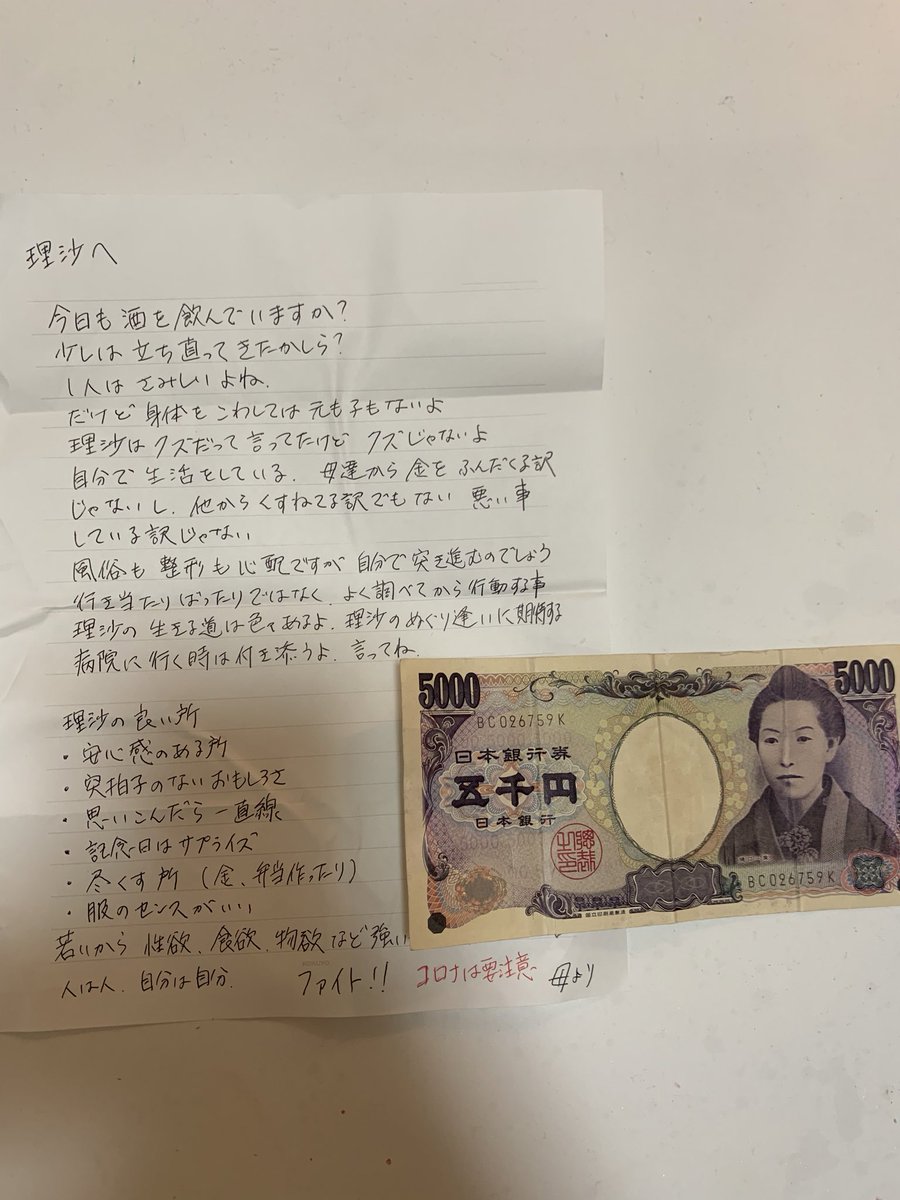 理沙へ
今日も酒を飲んでいますか?
少しは立ち直ってきたかしら?
1人はさみしいよね.
だけど身体をこわしては元も子もないよ
理沙はクズだって言ってたけどクズじゃないよ
自分で生活をしている.母達から金をふんだくる訳
じゃないし.他からくすねてる訳でもない 悪い事
している訳じゃない
風俗も整形も心配ですが自分で突き進むのでしょう
行き当たりばったりではなく、よく調べてから行動する事
理沙の生きる道は色々あるよ.理沙のめぐり逢いに期待する
病院に行く時は付き添うよ.言ってね.
理沙の良い所
・安心感のある所
・突拍子のないおもしろさ
・思いこんだら一直線
・記念日はサプライズ
・尽くす所(金、弁当作ったり)
・服のセンスがいい
若いから性欲、食欲、物欲など強い
人は人.自分は自分.
ファイト!! コロナは要注意 母より
KOKUYO
5000
5000
BC026759K
日本銀行券
五千円
日本銀行
BC026759K
国立印刷局製造